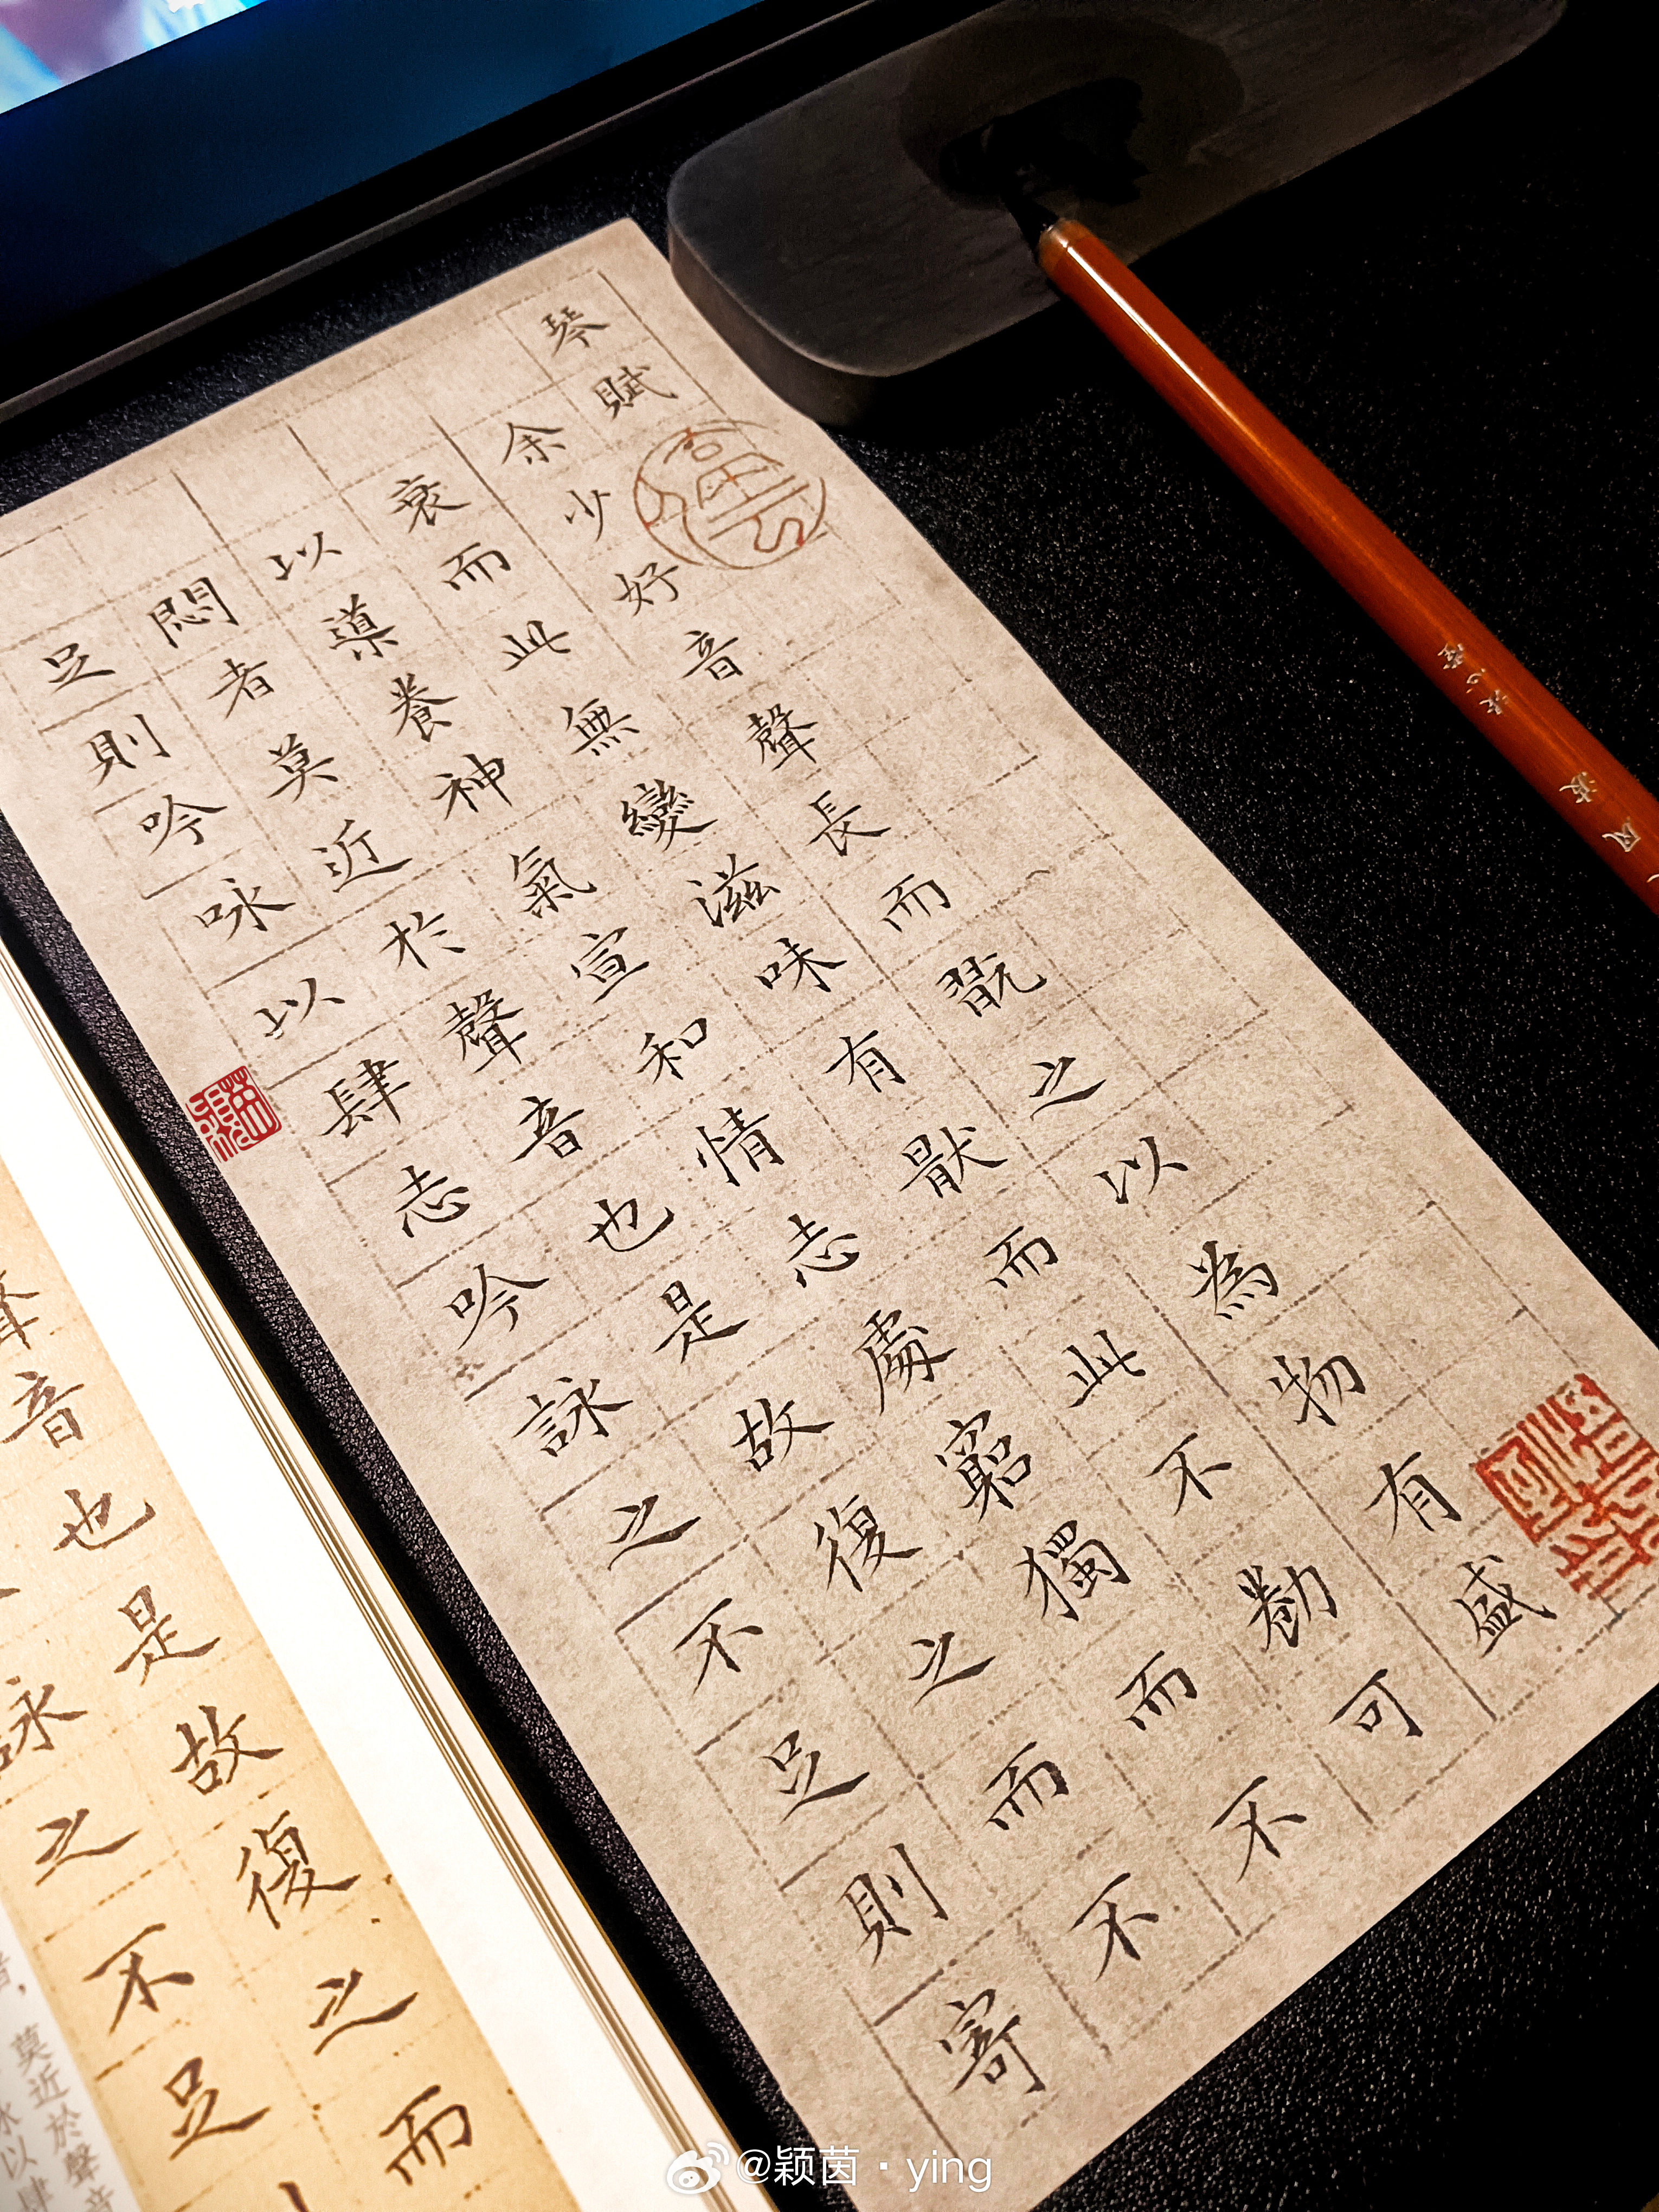 琴賦
余少好音聲長而翫之以為物有盛
衰而此無變滋味有猒而此不勌可
以導養神氣宣和情志處窮獨而不
悶者莫近於聲音也是故復之而不
足則吟咏以肆志吟詠之不足則寄
聲音也是故復之而
詠之不足
莫近於聲音
以肆
@颖茵·ying